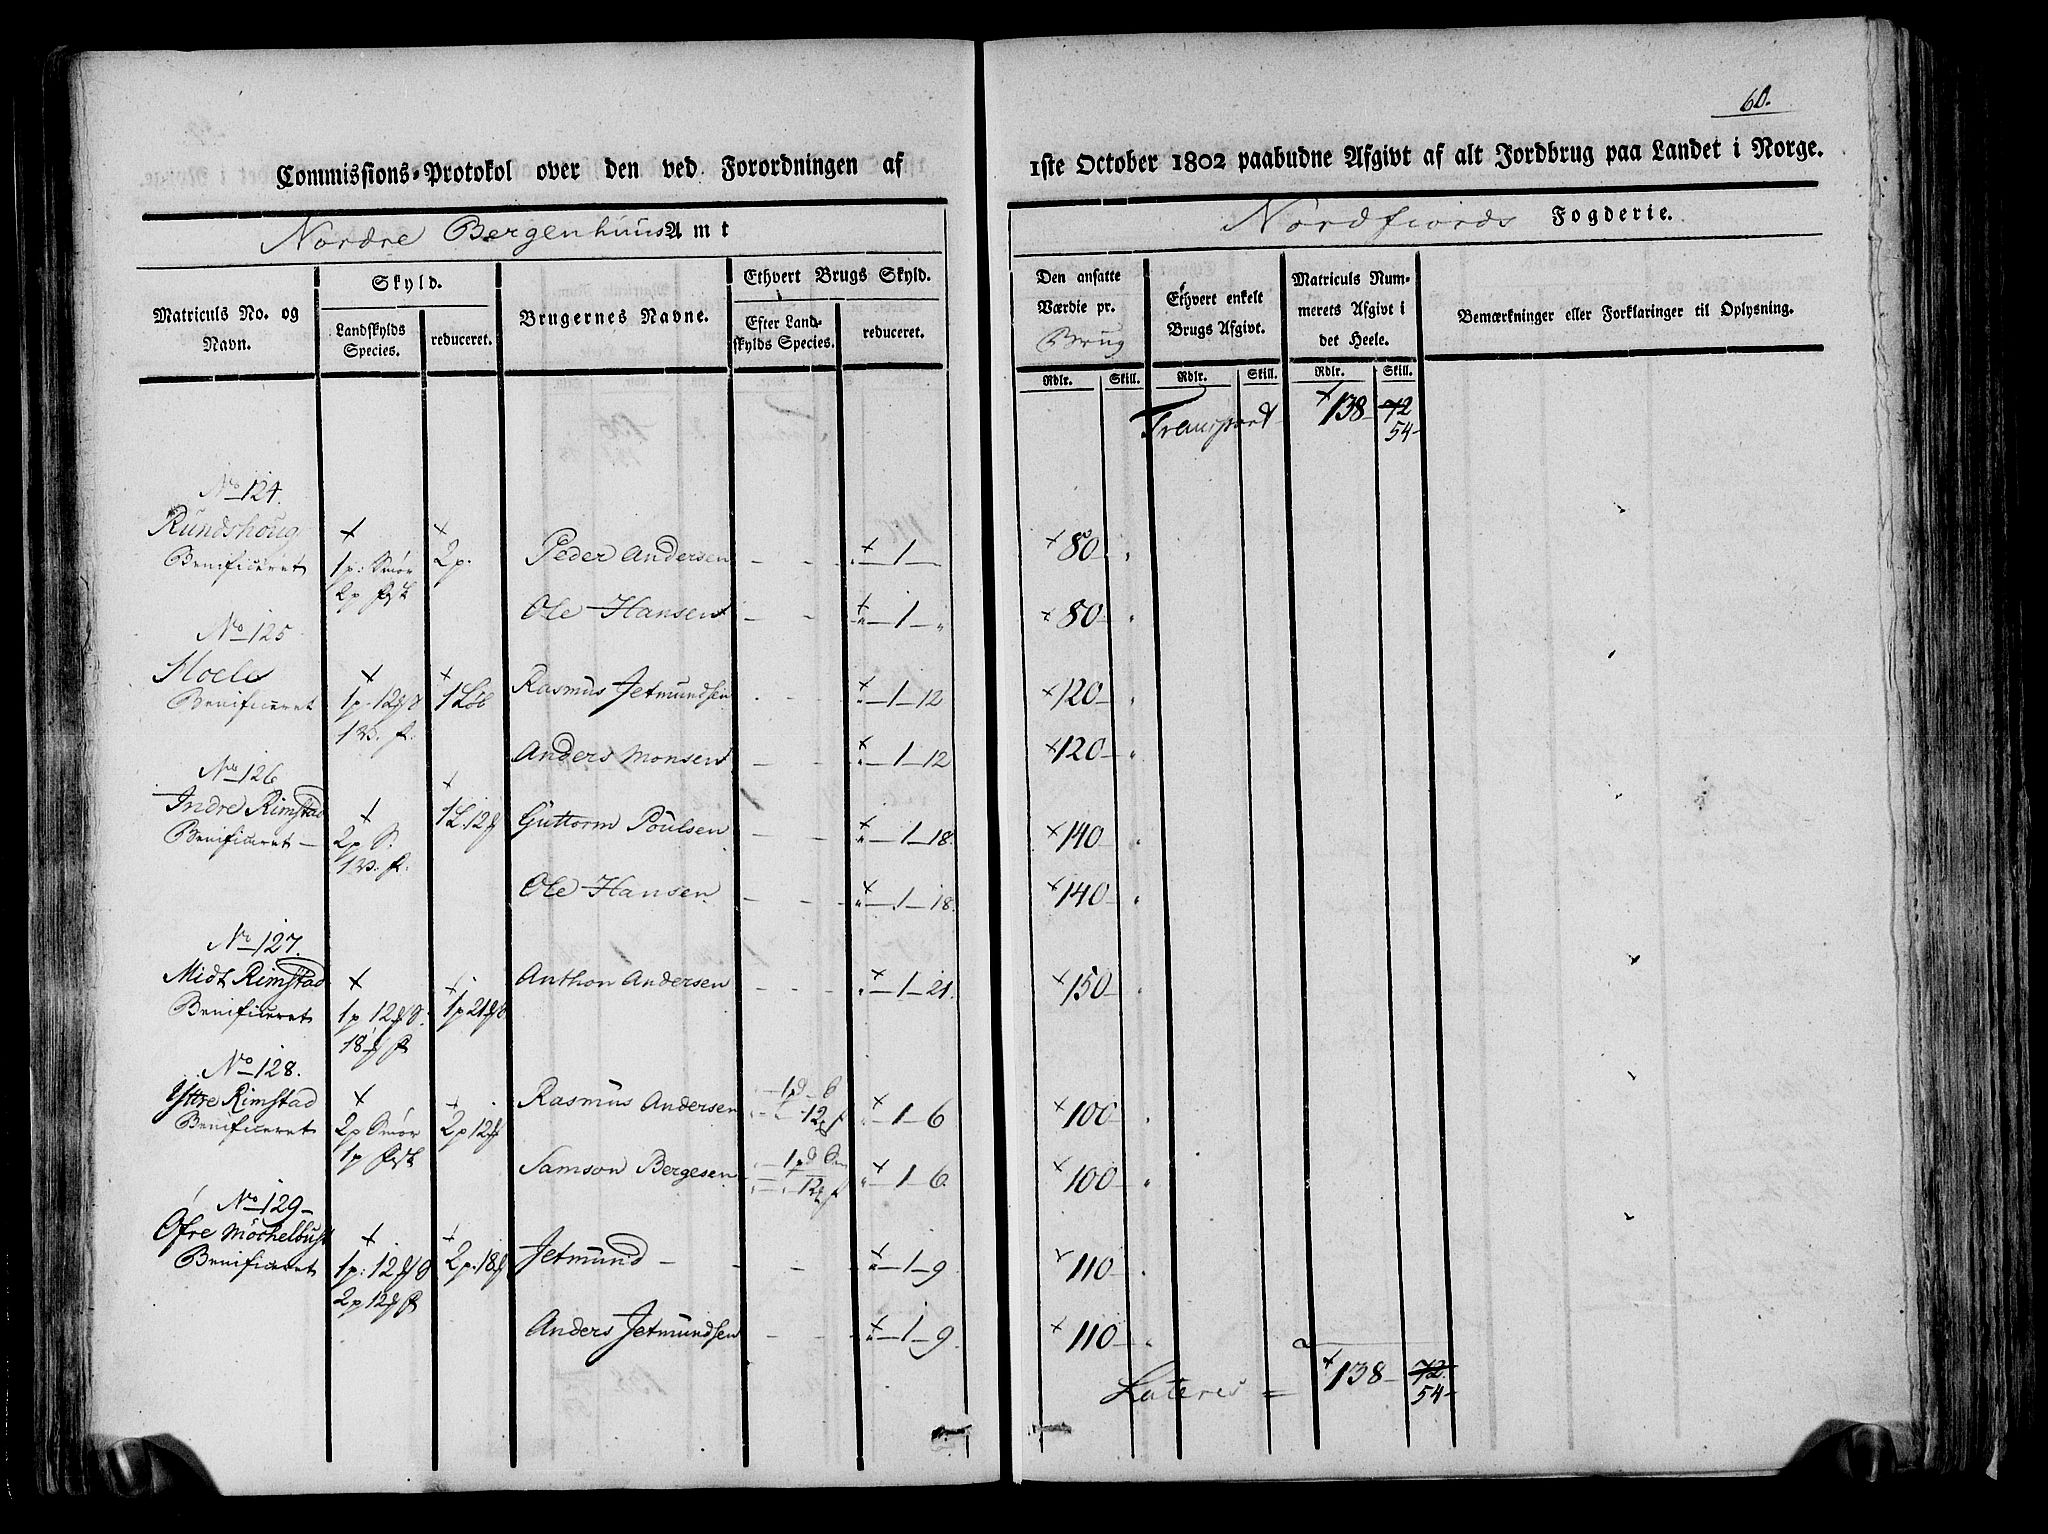 60.
Commissions-Protokol over den ved Forordningen af
1ste October 1802 paabudne Afgivt af alt Jordbrug paa Landet i Norge.
Nordre Bergenhuus Amt
Nordfiords Fogderie.
Matriculs No. og Navn.
Skyld.
Landskylds Species.
reduceret.
Brugernes Navne.
Ethvert Brugs Skyld.
Efter Landskylds Species.
reduceret.
Den ansatte Værdie pr. Brug
Ethvert enkelt Brugs Afgivt.
Matriculs Nummerets Afgivt i det Heele.
Bemærkninger eller Forklaringer til Oplysning.
Rdlr. Skill. Rdlr. Skill. Rdlr. Skill.
Transport × 138 72
54
No 124.
Rundshoug × ×
Benificeret 1p: Smør 2p. Peder Andersen - - × 1 - × 80 "
2p fisk
Ole Hansen - - × 1 - " × 80 "
No 125
Moele × ×
Benificeret 1p. 12 1 Løb Rasmus Jetmundsen - - × 1 - 12 × 120 "
Anders Monsen - - × 1 - 12 × 120 "
No 126
Indre Rimstad × ×
Benificeret 2p S. 1L. 12 Guttorm Poulsen - - × 1 - 18. × 140 "
Ole Hansen - - × 1 - 18. × 140 "
No 127.
Midt Rimstad × ×
Benificeret 1p 12 S. 1p 21 Anthon Andersen - - × 1 - 21. × 150 "
18
No 128.
Yttre Rimstad × ×
Benificeret 2p Smør 2p 12 Rasmus Andersen × 1 - 6 × 100 "
1p fisk
Samson Bergesen × 1 - 6 × 100 "
No 129
Øfre Möchelbust × ×
Benificeret 1p: 12 2p. 18 Jetmund - - - × 1 - 9 × 110 "
2p 12
Anders Jetmundsen - - × 1 - 9 × 110 "
Lateres = × 138 72
54